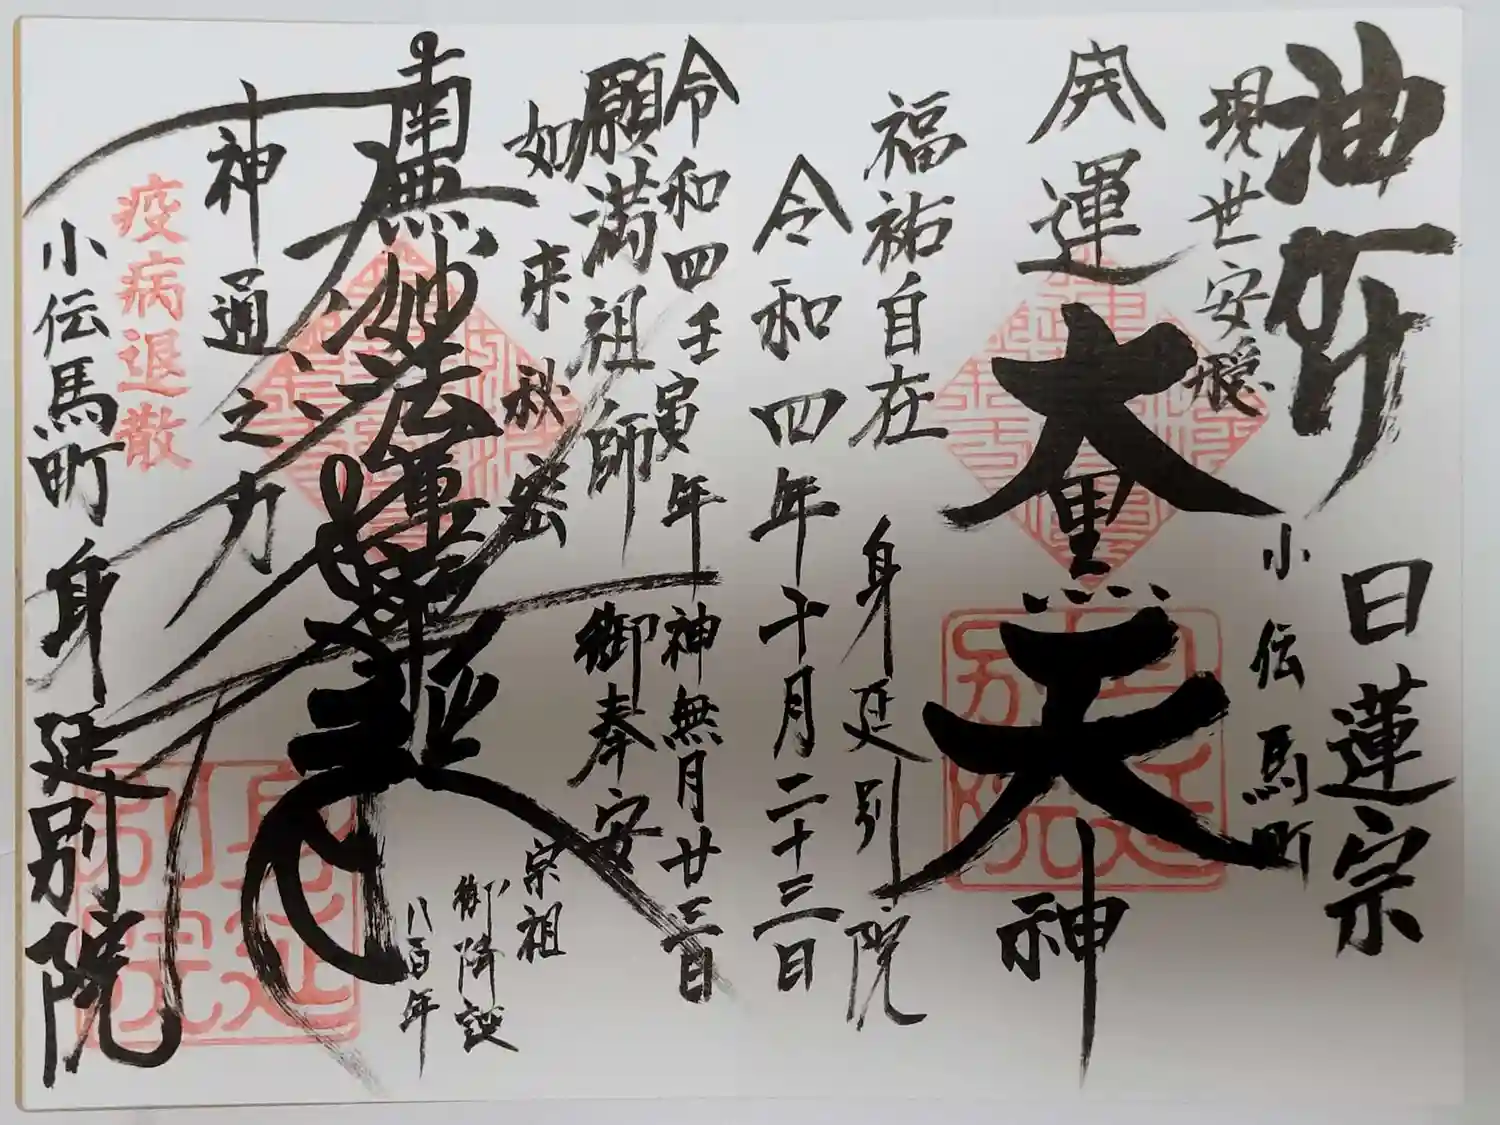 油所
日蓮宗
現世安穏
小伝馬町
開運
大黒天
神
福祐自在
身延別院
令和四年十月二十三日
令和四壬寅年
神無月廿三日
願満祖師
御奉安
如来秘密
宗祖
御降誕
八百年
南無妙法蓮華経
神通之力
疫病退散
小伝馬町
身延別院
身延別院